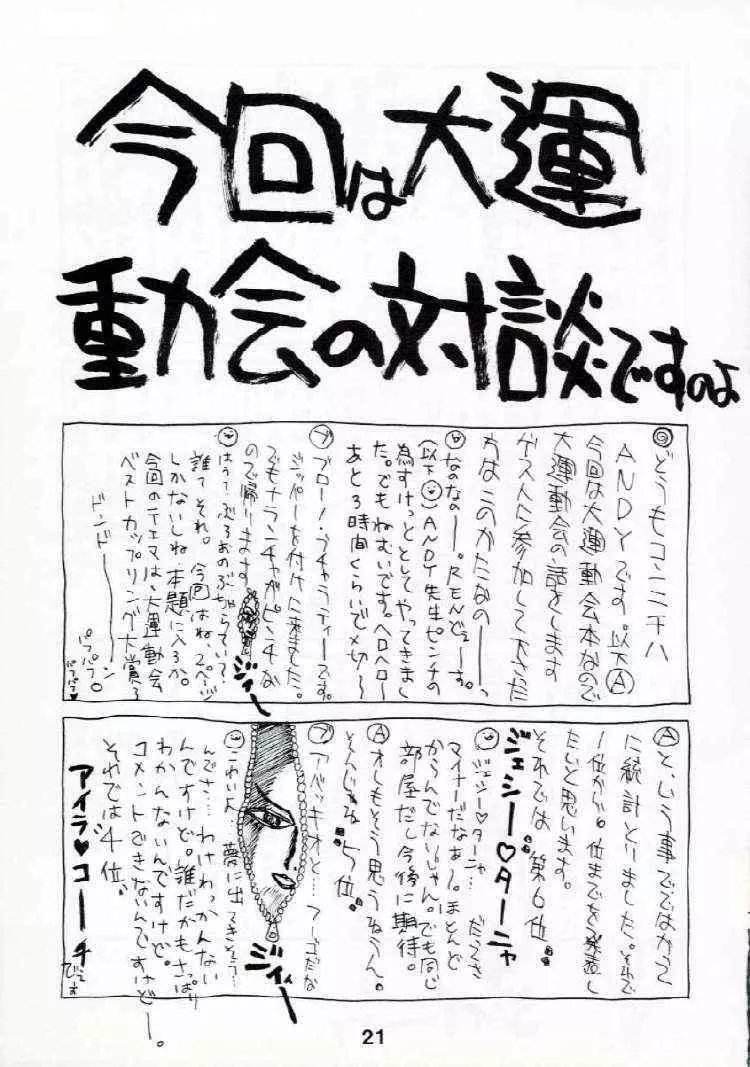 今回は大運
動会の対談ですのよ
Ⓐどうもコンニチハ
ANDYです。以下Ⓐ
今回は大運動会本なので
大運動会の話をします
ゲストに参加して下さった
方はこのかたなのーー、
なのなのー。RENどぇーす。
(以下☺)ANDY先生ピンチの
為すけっととしてやってきまし
た。でもねむいです。ヘロヘロ〜
あと3時間くらいで〆切〜
ブブロー/・ブチャラティーズです。
ジッパーを付けに来ました。
でもナランチャがピンチな
ので帰ります
ジィー
☺はぅ?ぶろおのぶちゃらてい?
誰てそれ。今回はね、2ページ
しかないしね、本題に入ろか。
今回のテェマは、大運動会
ベストカップリング大賞ろ
ドンドーーーン
パフパフ○
パフパフ♥
Ⓐという事でではがって
に統計とりました。それで
1位から6位までを発表し
たいと思います。
それでは第6位
ジェシー♡ターニャ
☺ジェシー♡ターニャ…だぇき
マイナーだなぁー。ほとんど
からんでないじゃん。でも同じ
部屋だし今後に期待。
Ⓐオレもそう思うねうん。
そんじゃぁ5位。
ブアバッキオと…フーゴだな
ジィィー
☺こわいよ
夢に出てきそう…
んでさ…わけわっかんない
んですけど。誰だがもさっぱり
わかんないんですけど。
コメントできないんですけどー。
それでは4位。
アイラ♥コーチ
でェす
21